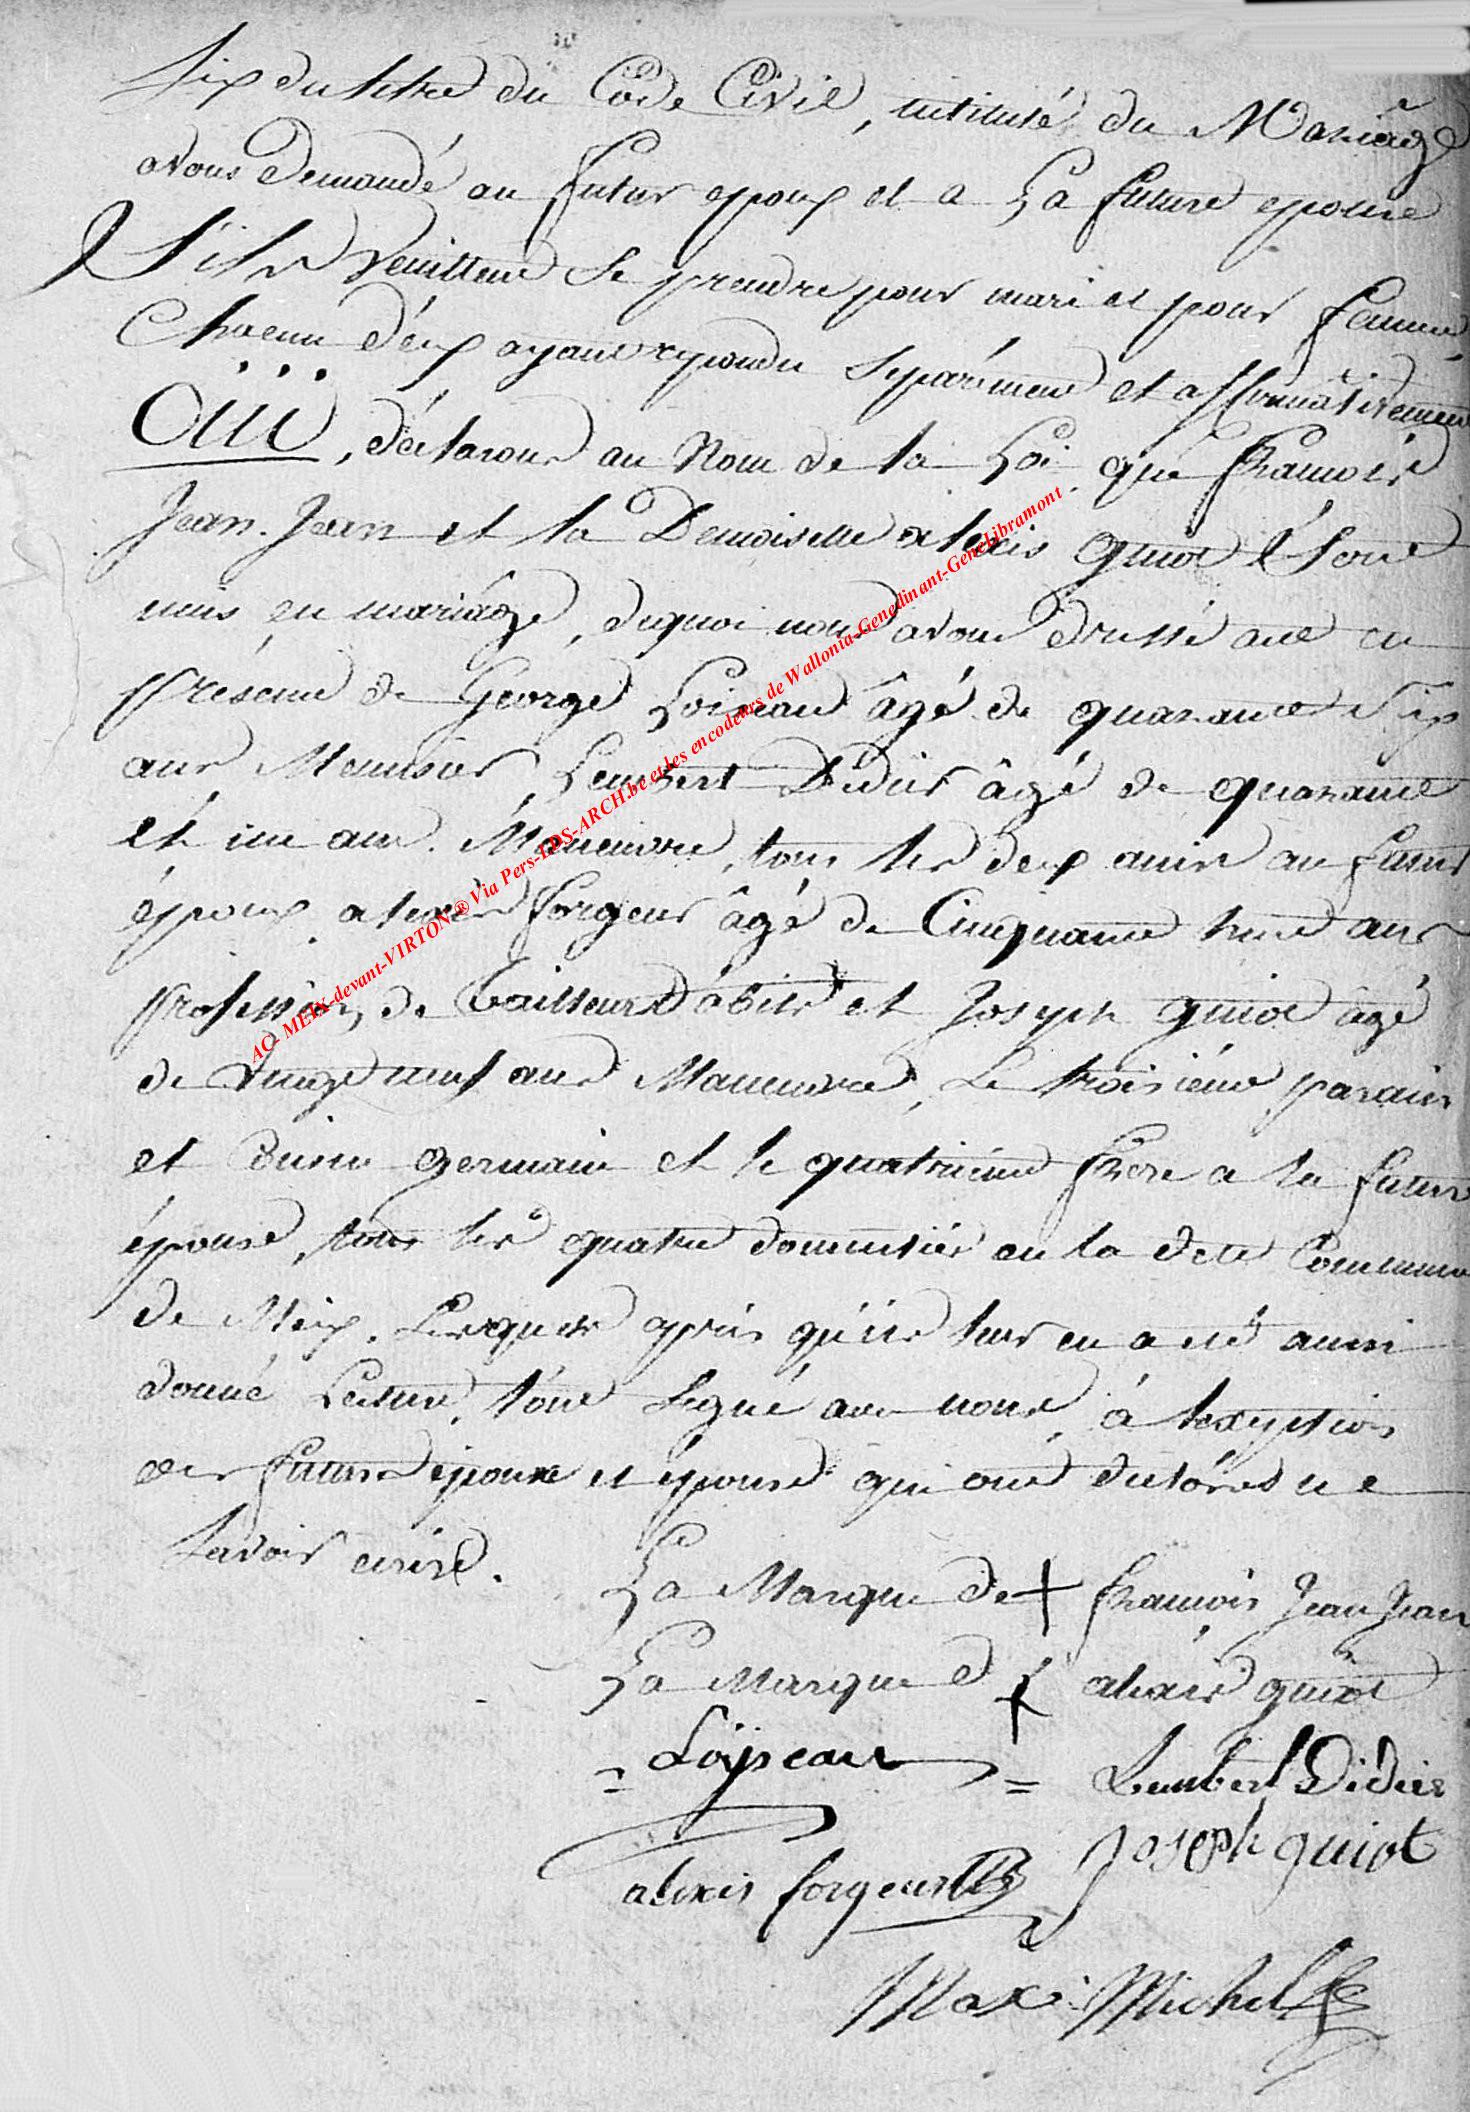 Six du titre du Code Civil, intitulé du Mariâge
avons Demandé au futur epoux et a La future epouse
S'ils veuillent Se prendre pour mari et pour femme,
Chacun d'eux ayant repondu Séparément et affirmativement
OUI, déclarons au Nom de la Loi que francois
Jean-Jean et la Demoiselle alexis quiot Sont
unis en mariâge, dequoi nous avons dressé acte en
présence de George Loiseau âgé de quarante Six
ans Menusier, Lambert Didier âgé de quarante
et un ans Maneuvre, tous les deux amis au futur
époux alexis forgeur âgé de Cinquante huit ans
profession de tailleur D'abits et Joseph quiot âgé
de Vingt neuf ans Maneuvre, Le troisiéme parain
et Cousin germain et le quatriéme frère a la future
épouse, tous les quatre domiciliés en la dite Commune
de Meix. Lesquels après qu'il leur en a été aussi
donné Lecture, l'ont Signé avec nous, à l'exception
des futurs époux et épouse qui ont déclarés ne
Savoir ecrire.
La Marque de + francois Jean Jean
La Marque d + alexis quiot
Loijseau = Lambert Didier
Joseph quiot
alexis forgeur
Max: Michel
AC- MEIX-devant-VIRTON® Via Pers-LDS-ARCH.be et les encodeurs de Wallonia-Genedinant-Genelibramont